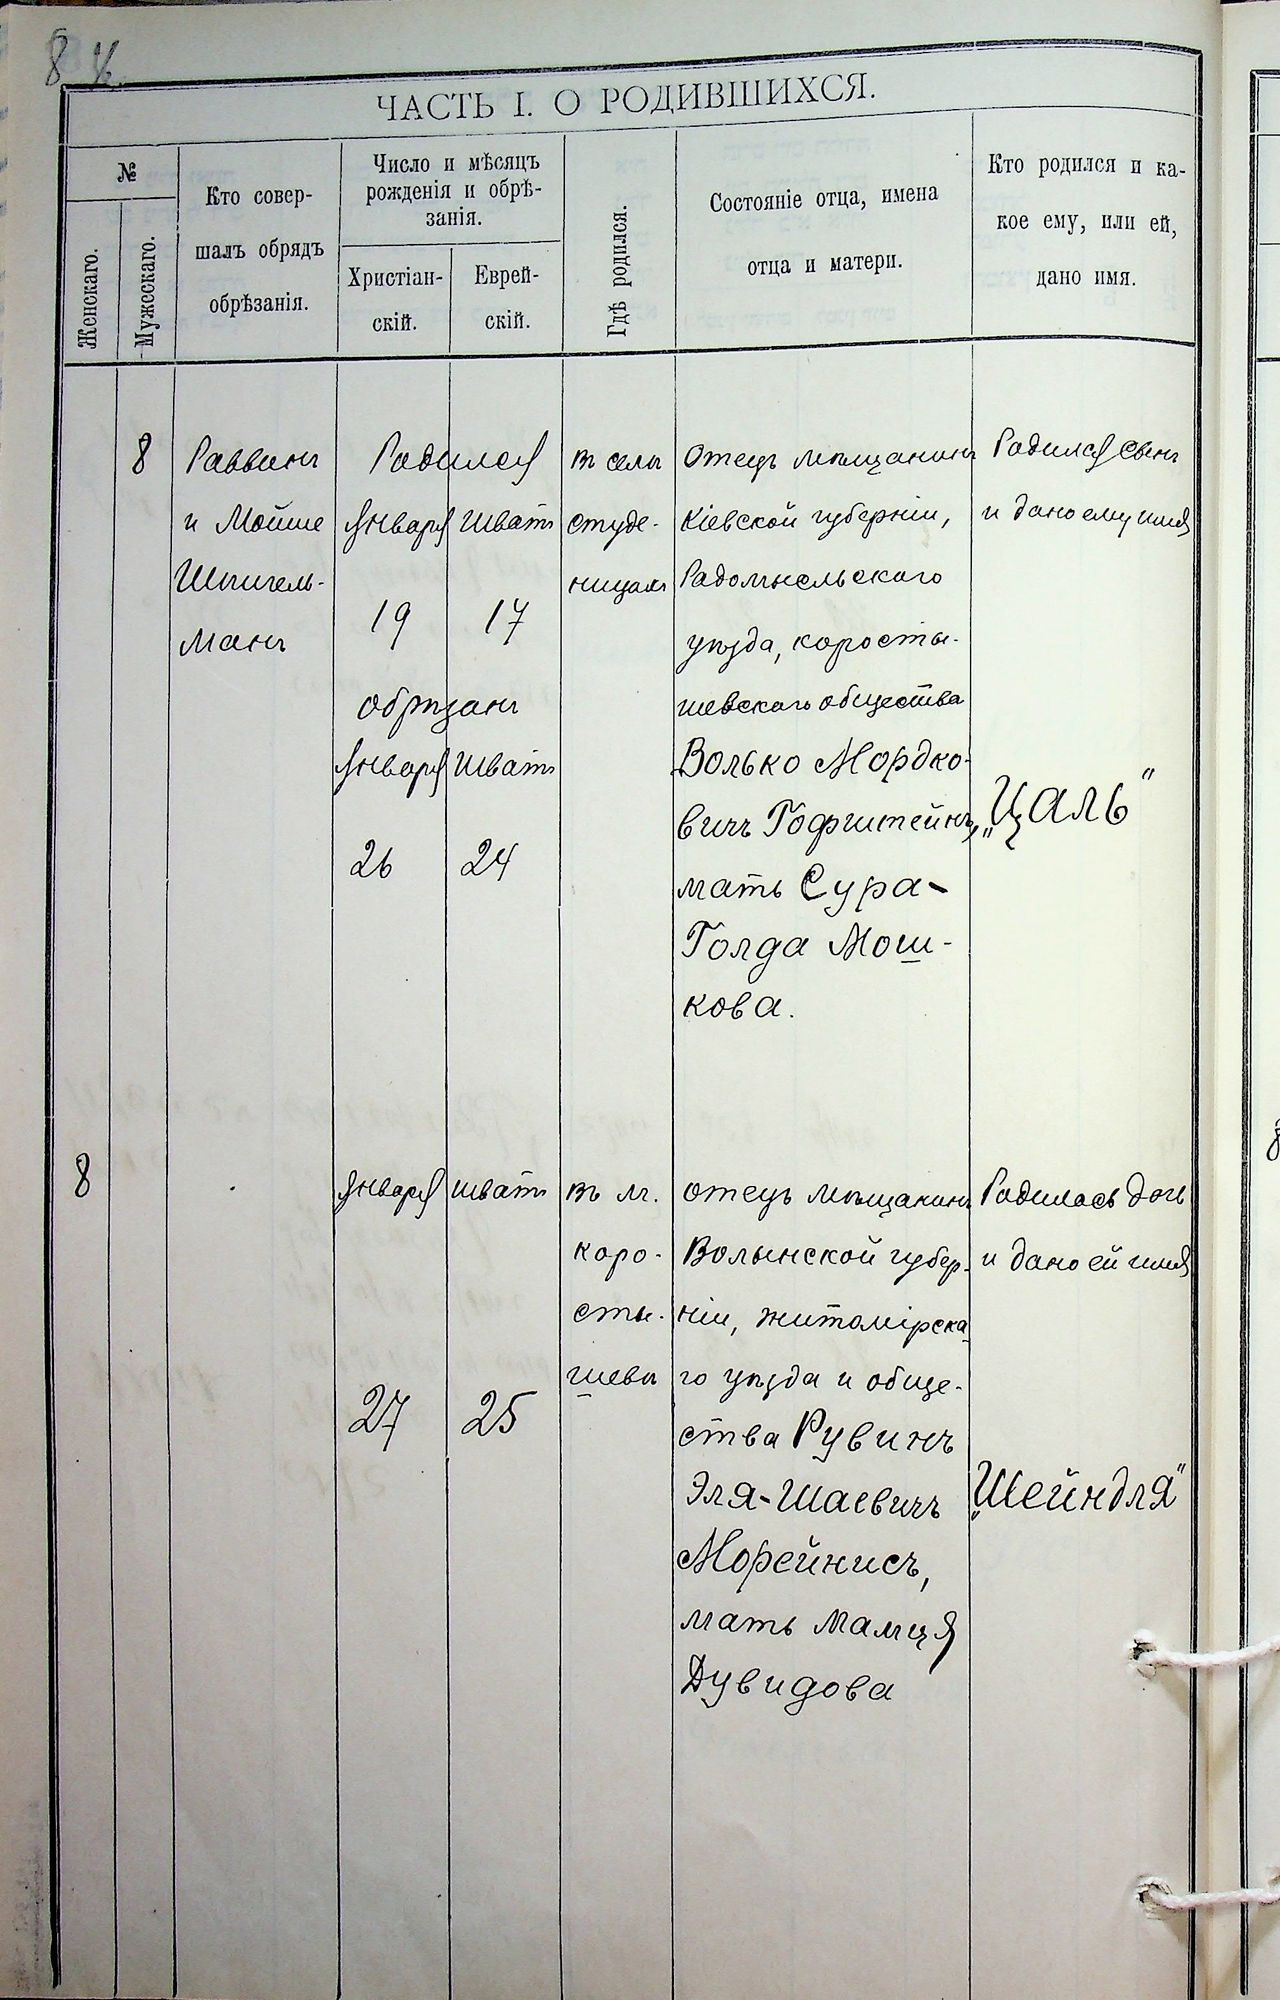 8 ½
ЧАСТЬ I. О РОДИВШИХСЯ.
№
Женскаго.
Мужескаго.
Кто совер-
шалъ обрядъ
обрѣзанія.
Число и мѣсяцъ
рожденія и обрѣ-
занія.
Христіан-
скій.
Еврей-
скій.
Гдѣ родился.
Состояніе отца, имена
отца и матери.
Кто родился и ка-
кое ему, или ей,
дано имя.
8
Раввинъ
и Мойше
Шпигель-
манъ
Родился
Января Шватъ
19 17
обрѣзанъ
Января Шватъ
26 24
въ селѣ
студе-
ницахъ
Отецъ мѣщанинъ
Кіевской губерніи,
Радомысльскаго
уѣзда, коросты-
шевскаго общества
Волько Мордко-
вичъ Гофштейнъ,
мать Сура-
Голда Мош-
кова.
Родился сынъ
и дано ему имя
„Цаль"
8
Января Шватъ
27 25
въ м.
коро-
сты-
шевѣ
отецъ мѣщанинъ
Волынской губер-
ніи, житомірска-
го уѣзда и обще-
ства Рувинъ
Эля-Шаевичъ
Морейнисъ,
мать Мамця
Дувидова
Родилась дочь
и дано ей имя
„Шейндля"